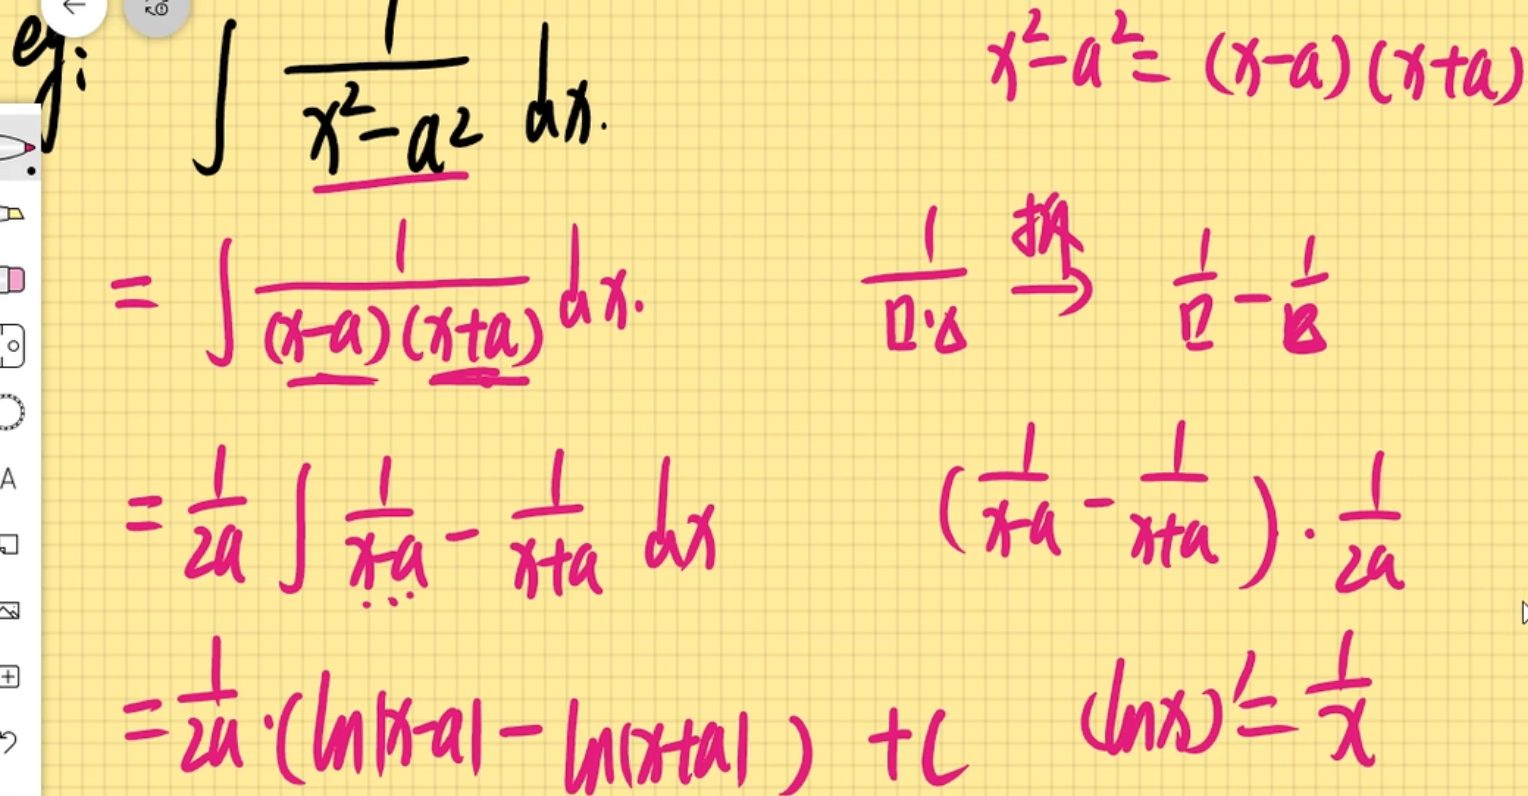 eg: ∫ 1/(x²-a²) dx.
x²-a² = (x-a)(x+a)
= ∫ 1/((x-a)(x+a)) dx.
1/(□·△) 拆→ 1/□ - 1/△
= 1/2a ∫ 1/(x-a) - 1/(x+a) dx
(1/(x-a) - 1/(x+a)) · 1/2a
= 1/2a ·(ln|x-a| - ln|x+a|) + C
(lnx)' = 1/x
A